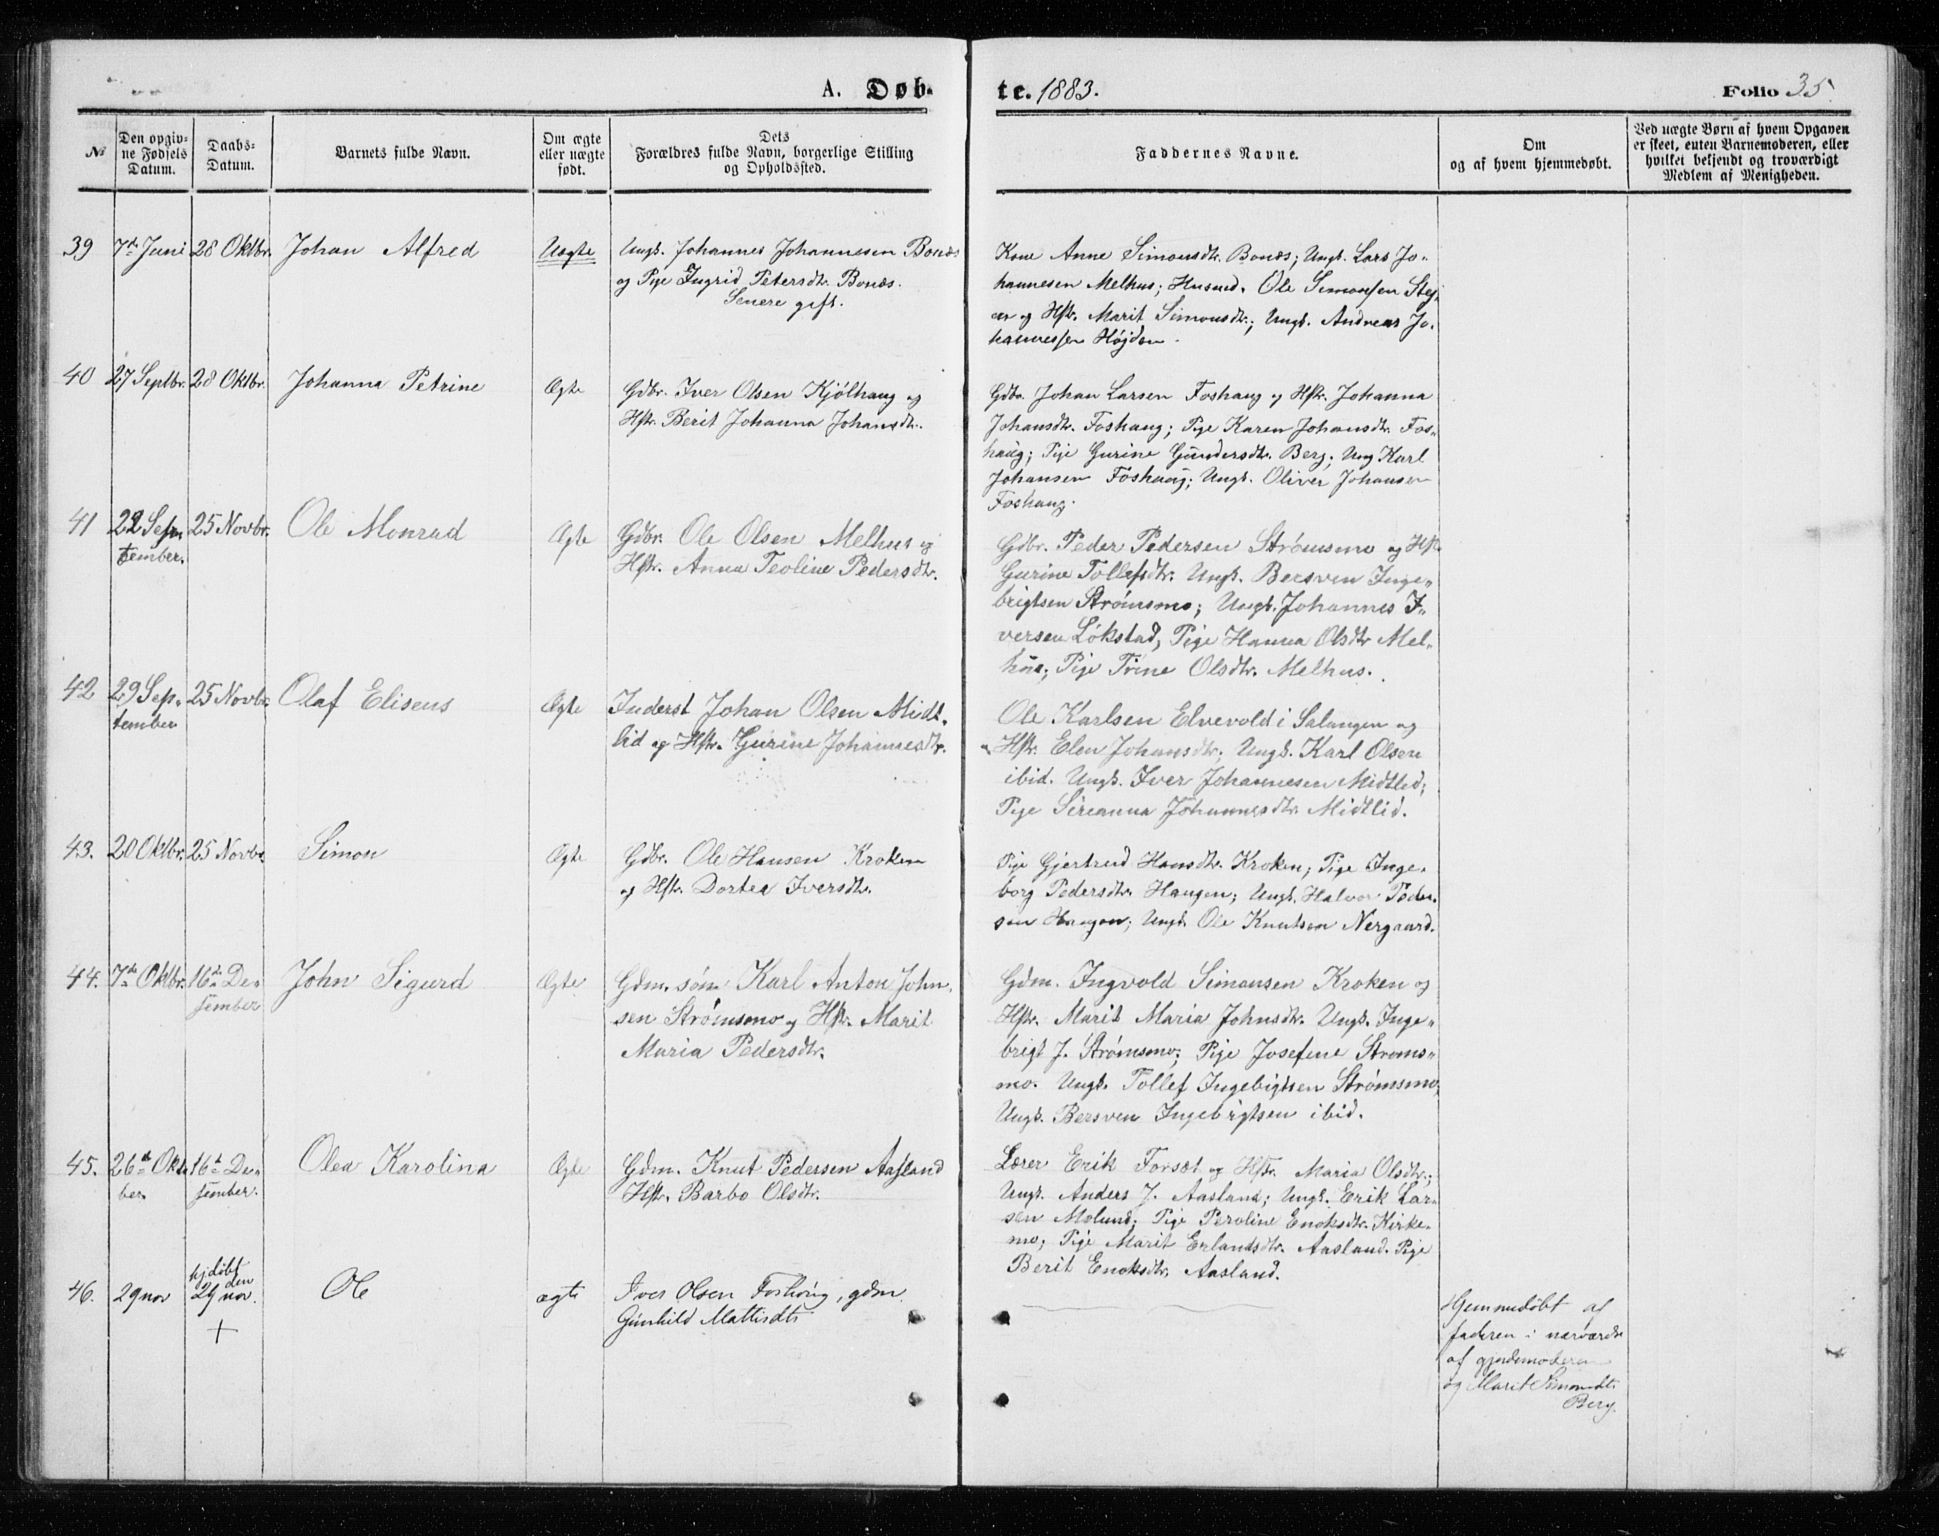 A. Døb-
te. 1883.
Folio 35.
№
Den opgiv-
ne Fødsels
Datum.
Daabs-
Datum.
Barnets fulde Navn.
Om ægte
eller uægte
født.
Dets
Forældres fulde Navn, borgerlige Stilling
og Opholdssted.
Faddernes Navne.
Om
og af hvem hjemmedøbt.
Ved uægte Børn af hvem Opgaven
er skeet, enten Barnemoderen, eller
hvilket bekjendt og troværdigt
Medlem af Menigheden.
39 7de Juni 28 Oktbr. Johan Alfred Uægte
Ungk. Johannes Johannesen Bonæs
og Pige Ingrid Petersdtr. Bonæs.
Senere gift.
Kone Anne Simonsdtr. Bonæs; Ungk. Lars Jo-
hannesen Melhus; Husmd. Ole Simonsen Stej-
og Hstr. Marit Simonsdtr.; Ungk. Andreas Jo-
hannesen Højden.
40 27 Septbr. 28 Oktbr. Johanna Petrine Ægte
Gdbr. Iver Olsen Kjølhaug og
Hstr. Berit Johanna Johansdtr.
Gdbr. Johan Larsen Foshaug og Hstr. Johanna
Johansdtr. Foshaug; Pige Karen Johansdtr. Fos-
haug; Pige Gurine Gundersdtr. Berg; Ung Karl
Johansen Foshaug; Ungk. Oliver Johansen
Foshaug.
41 22 Sep-
tember. 25 Novbr. Ole Monrad Ægte
Gdbr. Ole Olsen Melhus og
Hstr. Anna Teoline Pedersdtr.
Gdbr. Peder Pedersen Strømsmo og Hstr.
Gurine Tollefsdtr. Ungk. Bersven Inge-
brigtsen Strømsmo; Ungk. Johannes I-
versen Løkstad; Pige Hanna Olsdtr Mel-
hus; Pige Trine Olsdtr. Melhus.
42 29 Sep-
tember 25 Novbr. Olaf Eliseus Ægte
Inderst Johan Olsen Midt-
lid og Hstr. Gurine Johannesdtr.
Ole Karlsen Elvevold i Salangen og
Hstr. Elen Johansdtr; Ungk. Karl Olsen
ibid. Ungk. Iver Johannesen Midtlid;
Pige Sirianna Johannesdtr. Midtlid.
43. 20 Oktbr. 25 Novbr Simon Ægte
Gdbr. Ole Hansen Kroken
og Hstr. Dortea Iversdtr.
Pige Gjertrud Hansdtr. Kroken; Pige Inge-
borg Pedersdtr. Haugen; Ungk. Halvor Peder-
sen Haugen; Ungk. Ole Knutsen Nergaard.
44. 7de Oktbr. 16de De-
sember John Sigurd Ægte
Gdm. søn Karl Anton John-
sen Strømsmo og Hstr. Marit
Maria Pedersdtr.
Gdm. Ingvold Simonsen Kroken og
Hstr. Marit Maria Johnsdtr. Ungk. Inge-
brigt J. Strømsmo; Pige Josefine Strøms-
mo. Ungk. Tollef Ingebrigtsen Strømsmo;
Ungk. Bersven Ingebrigtsen ibid.
45. 26de Okto-
ber 16de De-
sember. Olea Karolina Ægte
Gdm. Knut Pedersen Aasland
Hstr. Barbo Olsdtr.
Lærer Erik Forsæt og Hstr. Maria Olsdtr.;
Ungk. Anders J. Aasland; Ungk. Erik Lar-
sen Molund; Pige Peroline Enoksdtr. Kirke-
mo; Pige Marit Erlandsdtr. Aasland. Pige
Berit Enoksdtr. Aasland.
46. 29 nov hjdøbt
den
29 nov.
+ Ole ægte
Iver Olsen Foshøug, gdm.
Günhild Mattisdtr
Hjemmedøbt af
faderen i nærværelse
af gjordemoderen
og Marit Simonsdtr
Berg.